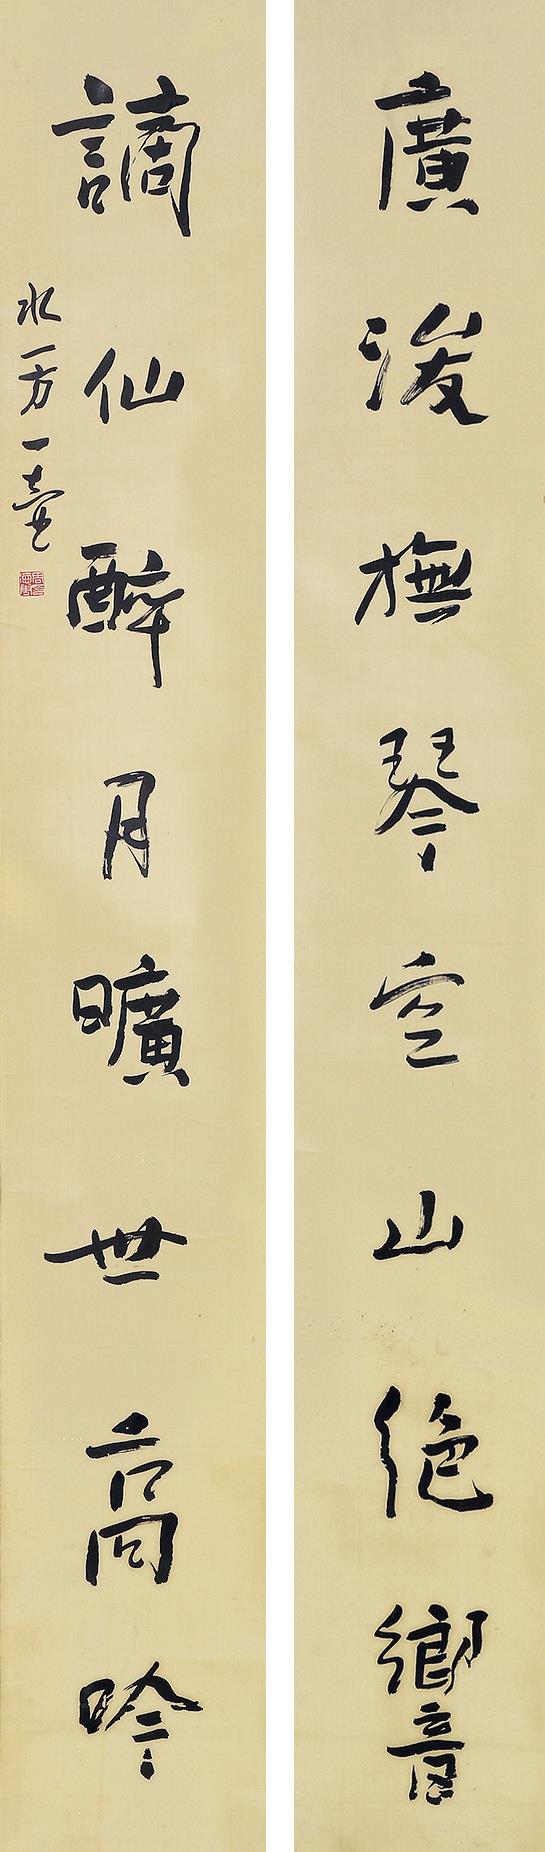 廣撫琴空山絕響
謫仙醉月曠世高吟
水一方一壺